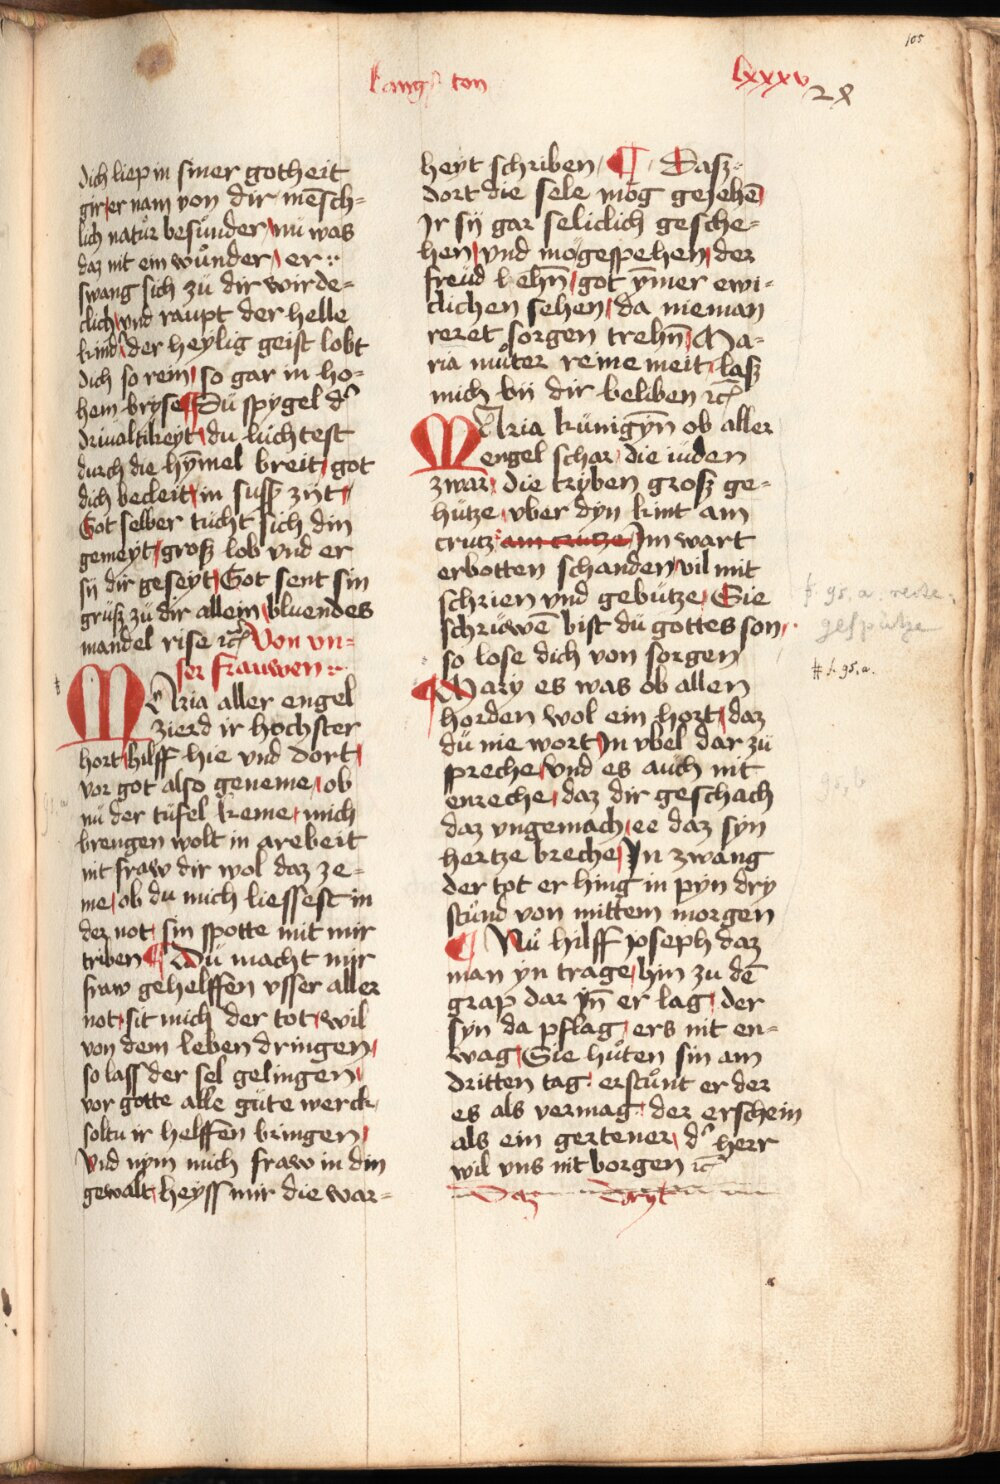 105
lang ton
lxxxv
28
dich liep in siner gotheit
gir er nam von dir mēsch=
lich natuͦr besuͦnder nü was
daz nit ein wuͦnder er
swang sich zü dir wirde=
clich vnd raupt der helle
kind der heylig geist lobt
dich so rein so gar in ho=
hem bryse ¶ Dü spygel d'
driualtikeyt du lüchtest
durch die hȳmel breit got
dich becleit in suss zijt
Got selber tücht sich din
gemeyt groß lob vnd er
sij dir geseyt Got sent sin
grüß zü dir allein bluendes
mandel rise ꝛc Von vn=
ser frauwen
MAria aller engel
zierd ir hochster
hort hilff hie vnd dort
vor got also geneme ob
nü der tüfel keme mich
brengen wolt in arebeit
nit fraw dir wol daz ze=
me ob du mich liessest in
der not sin spotte mit mir
triben ¶ Dü macht mir
fraw gehelffen vsser aller
not sit mich der tot wil
von dem leben dringen
so lass der sel gelingen
vor gotte alle güte werck
soltu ir helffen bringen
Vnd nym mich fraw in din
gewalt heyss mir die war=
heyt schriben ¶ Dasz
dort die sele mög gesehē
Ir sij gar seliclich gesche=
hen vnd möge spehen der
freüd lehn̄ got ȳmer ewi=
clichen sehen da nieman
reret sorgen trehn̄ Ma=
ria muͦter reine meit lasz
mich bij dir beliben ꝛc
MAria künigȳn ob aller
engel schar die iüden
zwar die tryben grosz ge=
hütze vber dyn kint am
crutz am crutze Im wart
erbotten schanden vil mit
schrien vnd gebütze Sie
schriüwē bist dü gottes son
so lose dich von sorgen
¶ Mary es was ob allen
horden wol ein hort daz
dü nie wort In vbel dar zü
spreche vnd es aüch nit
enreche daz dir geschach
daz vngemach ee daz syn
hertze breche Yn zwang
der tot er hing in pyn dry
stuͦnd von mittem morgen
¶ Nuͦ hilff yoseph daz
man yn trage hin zu dē
grap dar ȳn er lag der
syn da pflag ers nit en=
wag Sie huͦten sin am
dritten tag erstuͦnt er der
es als vermag der erschein
als ein gertener d' herr
wil vns nit borgen ꝛc
Daz Dryt
f. 95. a. reite
gespütze
# f. 95. a.
95, b